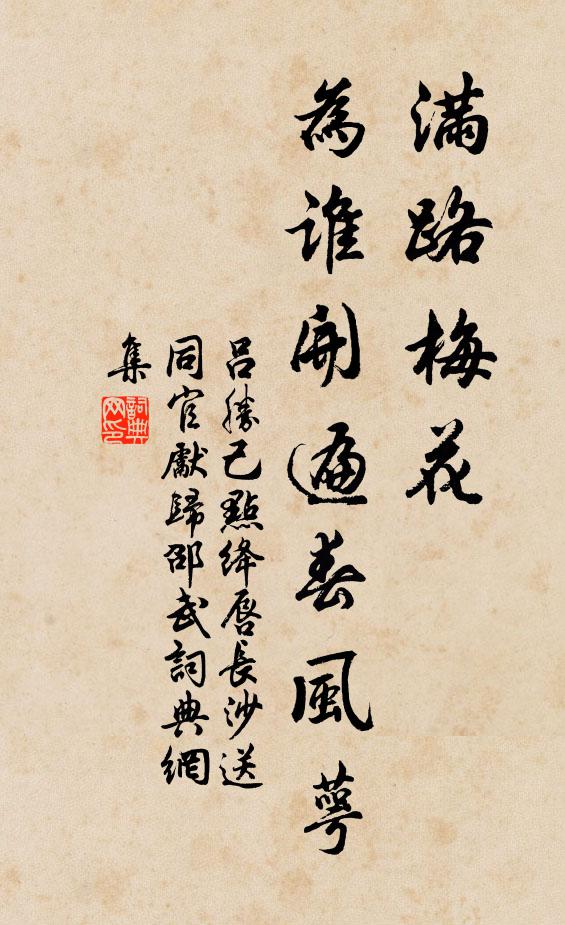 滿路梅花
為誰開遍春風萼
呂勝己點絳唇長沙送
同官獻歸邵武詞典網
集
詞典網印